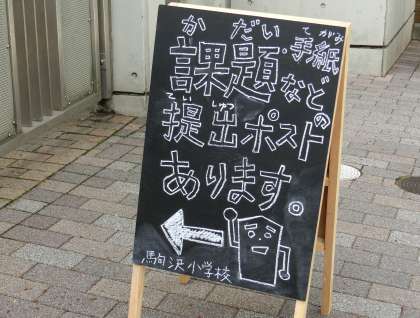 かだい てがみ
課題・手紙
などの
ていしゅつ
提出ポスト
あります。
駒沢小学校